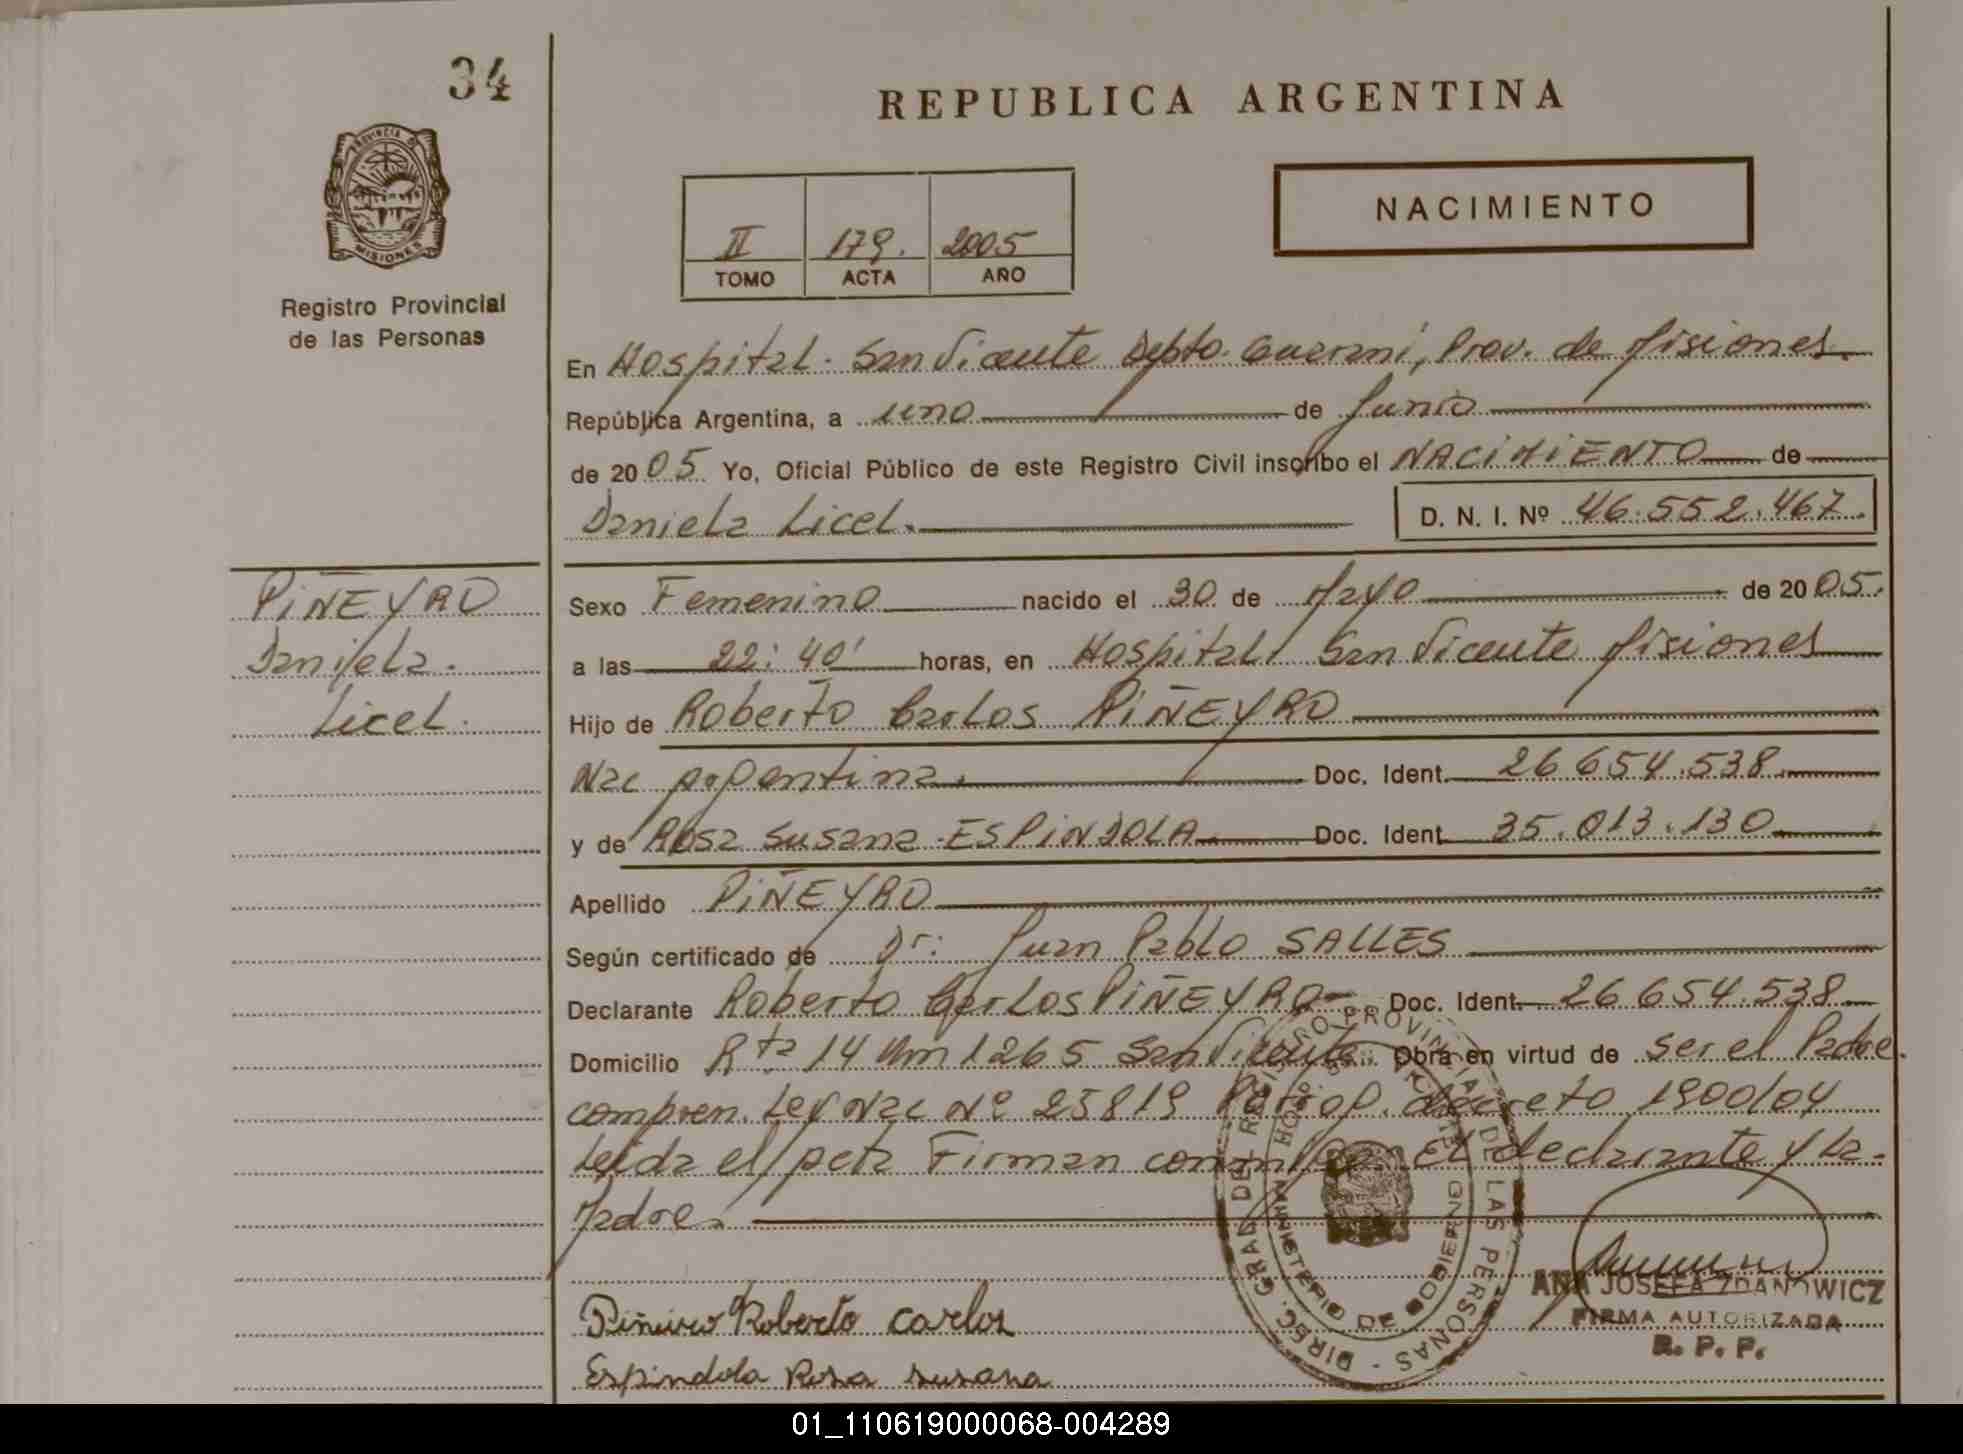 34
REPUBLICA ARGENTINA
PROVINCIA DE MISIONES
Registro Provincial
de las Personas
NACIMIENTO
II 179. 2005
TOMO ACTA AÑO
En Hospital. San Vicente Depto. Guaraní, Prov. de Misiones.
República Argentina, a uno de Junio
de 2005 Yo, Oficial Público de este Registro Civil inscribo el NACIMIENTO de
Daniela Licel. D. N. I. Nº 46.552.467.
PIÑEYRO
Daniela.
Licel.
Sexo Femenino nacido el 30 de Mayo de 2005.
a las 22:40' horas, en Hospital San Vicente Misiones
Hijo de Roberto Carlos PIÑEYRO
Nac Argentina. Doc. Ident. 26.654.538
y de Rosa Susana ESPINDOLA Doc. Ident. 35.013.130
Apellido PIÑEYRO
Según certificado de Dr: Juan Pablo SALLES
Declarante Roberto Carlos PIÑEYRO Doc. Ident. 26.654.538
Domicilio Rta 14 Km 1265 San Vicente. Obra en virtud de ser el Padre.
compren. Ley Nac Nº 25819 decreto 1900/04
Leída el Acta Firman conmigo El declarante y La
Madre.
Piñeiro Roberto Carlos
Espindola Rosa susana
DIREC. GRAL DEL REGISTRO PROVINCIAL DE LAS PERSONAS
MINISTERIO DE GOBIERNO
ANA JOSEFA ZDANOWICZ
FIRMA AUTORIZADA
R. P. P.
01_110619000068-004289